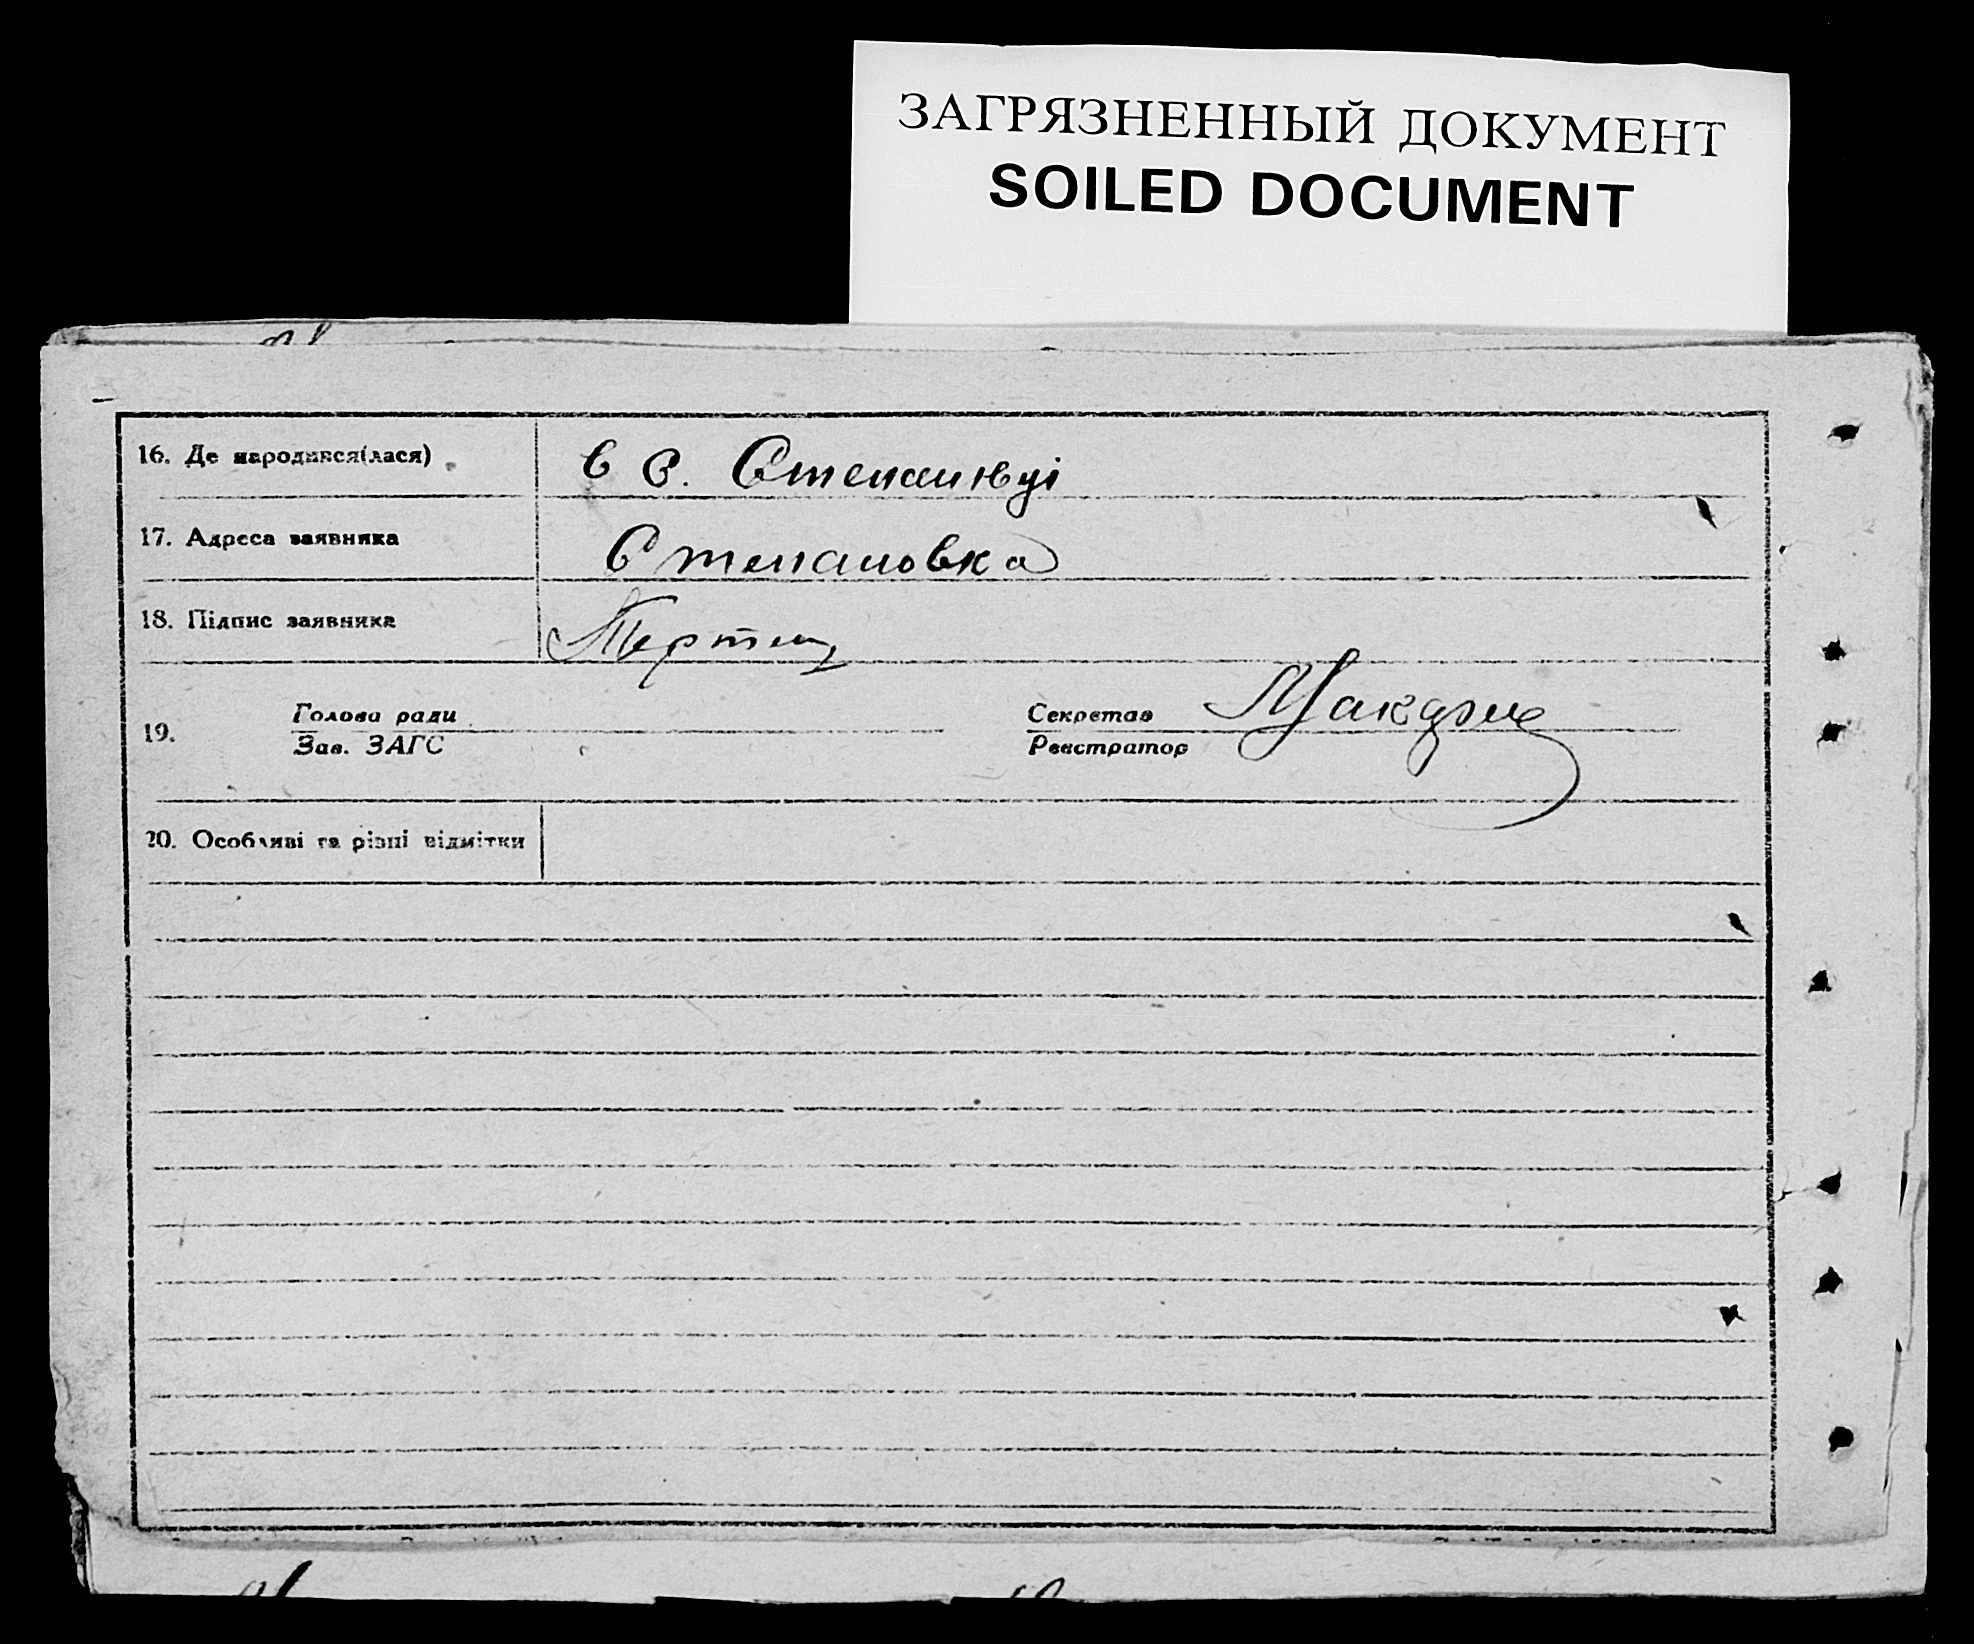 ЗАГРЯЗНЕННЫЙ ДОКУМЕНТ
SOILED DOCUMENT
16. Де народився(лася)
в с. Степанівці
17. Адреса заявника
Степановка
18. Підпис заявника
19.
Голова ради
Зав. ЗАГС
Секретар
Реєстратор
20. Особливі та різні відмітки